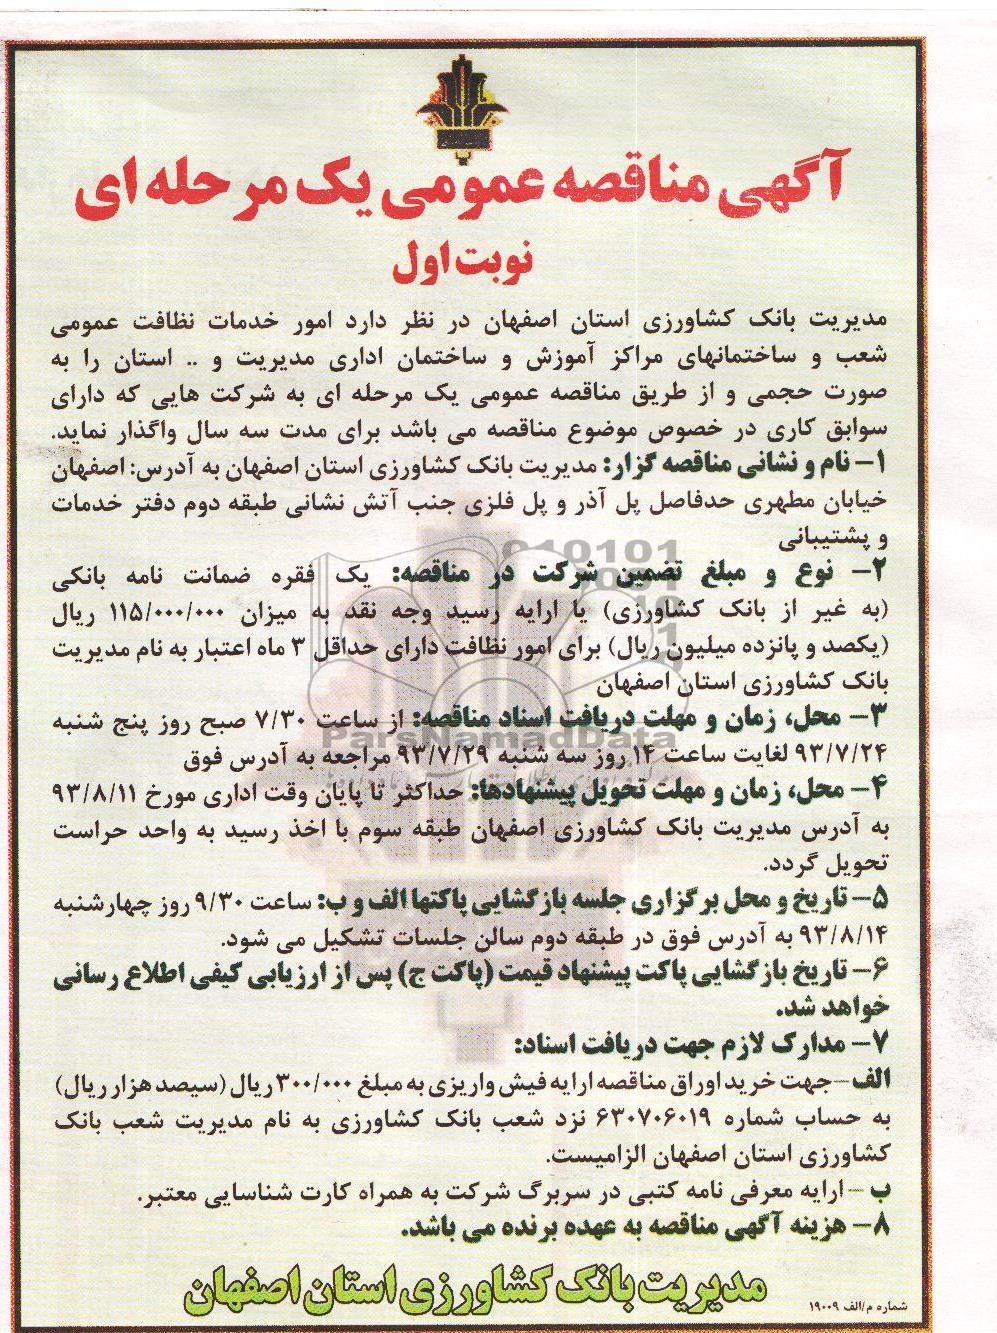 آگهی مناقصه عمومی یک مرحله ای
نوبت اول
مدیریت بانک کشاورزی استان اصفهان در نظر دارد امور خدمات نظافت عمومی
شعب و ساختمانهای مراکز آموزش و ساختمان اداری مدیریت و .. استان را به
صورت حجمی و از طریق مناقصه عمومی یک مرحله ای به شرکت هایی که دارای
سوابق کاری در خصوص موضوع مناقصه می باشد برای مدت سه سال واگذار نماید.
۱- نام و نشانی مناقصه گزار: مدیریت بانک کشاورزی استان اصفهان به آدرس: اصفهان
خیابان مطهری حدفاصل پل آذر و پل فلزی جنب آتش نشانی طبقه دوم دفتر خدمات
و پشتیبانی
۲- نوع و مبلغ تضمین شرکت در مناقصه: یک فقره ضمانت نامه بانکی
(به غیر از بانک کشاورزی) یا ارایه رسید وجه نقد به میزان ۱۱۵/۰۰۰/۰۰۰ ریال
(یکصد و پانزده میلیون ریال) برای امور نظافت دارای حداقل ۳ ماه اعتبار به نام مدیریت
بانک کشاورزی استان اصفهان
۳- محل، زمان و مهلت دریافت اسناد مناقصه: از ساعت ۷/۳۰ صبح روز پنج شنبه
ParsNamadData
۹۳/۷/۲۴ لغایت ساعت ۱۴ روز سه شنبه ۹۳/۷/۲۹ مراجعه به آدرس فوق
۴- محل، زمان و مهلت تحویل پیشنهادها: حداکثر تا پایان وقت اداری مورخ ۹۳/۸/۱۱
به آدرس مدیریت بانک کشاورزی اصفهان طبقه سوم با اخذ رسید به واحد حراست
تحویل گردد.
۵- تاریخ و محل برگزاری جلسه بازگشایی پاکتها الف و ب: ساعت ۹/۳۰ روز چهارشنبه
۹۳/۸/۱۴ به آدرس فوق در طبقه دوم سالن جلسات تشکیل می شود.
۶- تاریخ بازگشایی پاکت پیشنهاد قیمت (پاکت ج) پس از ارزیابی کیفی اطلاع رسانی
خواهد شد.
۷- مدارک لازم جهت دریافت اسناد:
الف- جهت خرید اوراق مناقصه ارایه فیش واریزی به مبلغ ۳۰۰/۰۰۰ ریال (سیصد هزار ریال)
به حساب شماره ۶۳۰۷۰۶۰۱۹ نزد شعب بانک کشاورزی به نام مدیریت شعب بانک
کشاورزی استان اصفهان الزامیست.
ب- ارایه معرفی نامه کتبی در سربرگ شرکت به همراه کارت شناسایی معتبر.
۸- هزینه آگهی مناقصه به عهده برنده می باشد.
مدیریت بانک کشاورزی استان اصفهان
شماره م/الف ۱۹۰۰۹